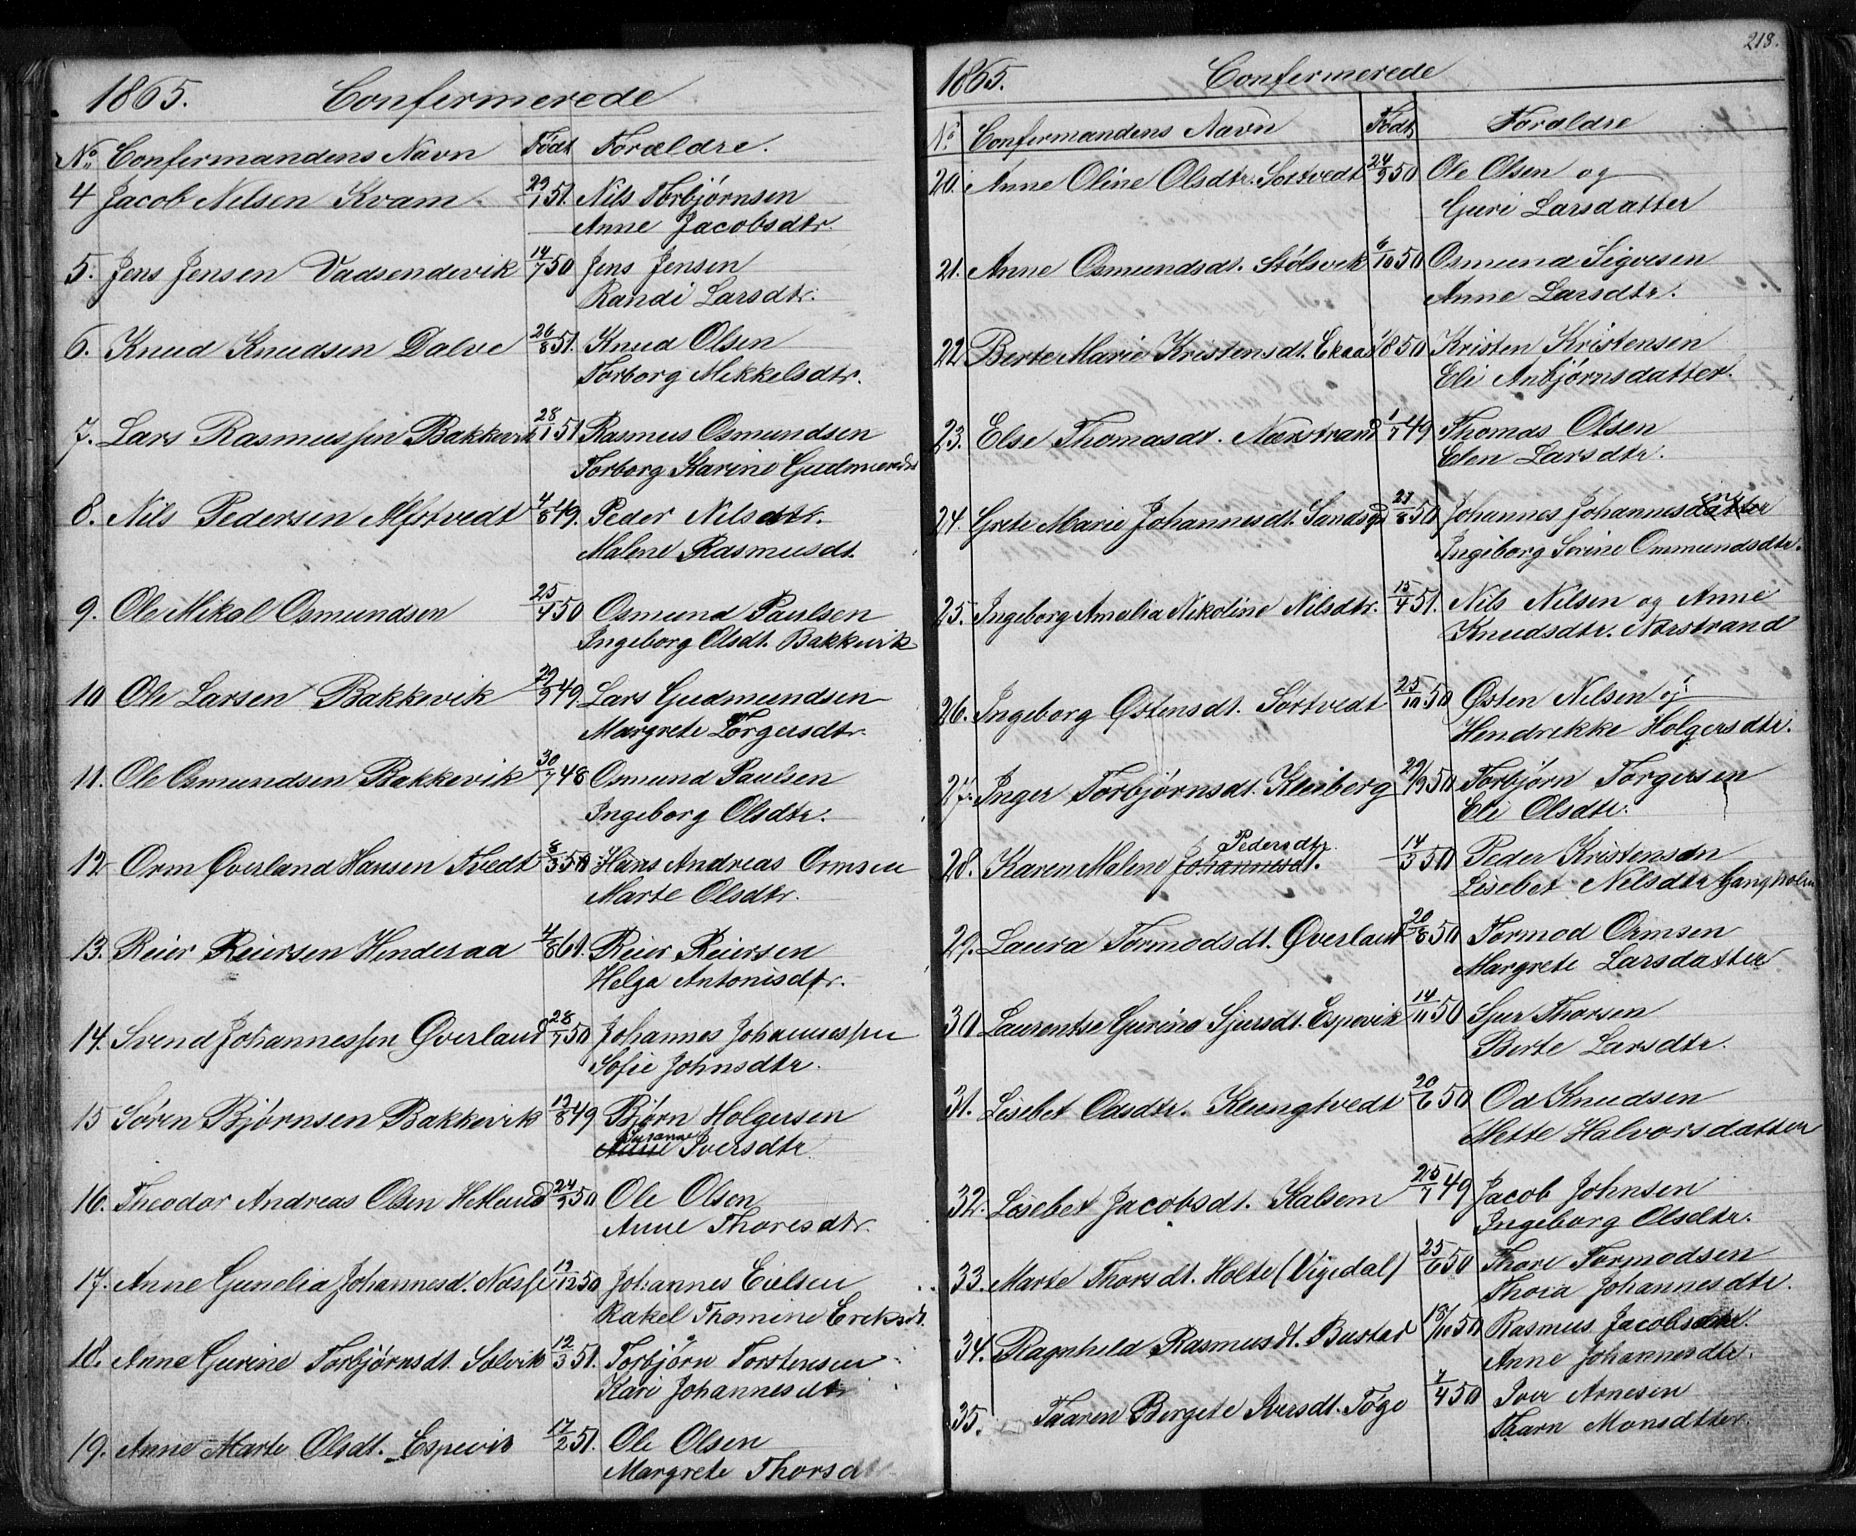 1865. Confermerede
No. Confermandens Navn Født Forældre.
4 Jacob Nilsen Kvam 29/1 51. Nils Torbjørnsen
Anne Jacobsdtr.
5. Jens Jensen Vadsendevik 14/7 50 Jens Jensen
Randi Larsdtr.
6. Knud Knudsen Dalve 26/8 51. Knud Olsen
Torborg Mikkelsdtr.
7. Lars Rasmussen Bakkevik 28/1 51 Rasmus Osmundsen
Torborg Karine Gudmundsd
8. Nils Pedersen Alfstvedt 4/8 49. Peder Nilsdtr.
Malene Rasmusdt
9. Ole Mikal Osmundsen 25/4 50 Osmund Paulsen
Ingeborg Olsdt. Bakkevik
10 Ole Larsen Bakkevik 29/9 49 Lars Gudmundsen
Margrete Torgersdtr.
11. Ole Osmundsen Bakkevik 30/7 48 Osmund Paulsen
Ingeborg Olsdtr.
12 Orm Øverland Hansen Tvedt 8/3 50 Hans Andreas Ormsen
Marte Olsdtr.
13. Reier Reiersen Hinderaa 4/8 61. Reier Reiersen
Helga Antonisdtr.
14. Svend Johannessen Øverland 28/7 50 Johannes Johannessen
Sofie Johnsdtr.
15 Søren Bjørnsen Bakkevik 12/8 49 Bjørn Holgersen
Susanne
Anne Iversdtr
16. Theodor Andreas Olsen Hetland 24/9 50 Ole Olsen
Anne Thoresdtr.
17. Anne Gunelia Johannesd. Næsse 13/12 50 Johannes Eielsen
Rakel Thomine Eriksdt.
18. Anne Gurine Torbjørnsdt. Solvik 12/3 51. Torbjørn Torstensen
Kari Johannesdtr
19. Anne Marte Olsdt. Espevik 17/2 51. Ole Olsen
Margrete Thorsd
218.
1865. Confermerede
No. Confermandens Navn Født Forældre
20. Anne Oline Olsdtr. Sortvedt 24/9 50 Ole Olsen og
Guri Larsdatter
21. Anne Osmundsdt. Stølsvik 6/10 50 Osmund Sigvesen
Anne Larsdtr.
22 Berte Marie Kristensdt. 1/8 50 Kristen Kristensen
Eli Anbjørnsdatter.
23. Else Thomasdt. Nærstrand 1/7 49 Thomas Olsen
Elen Larsdtr.
24. Grete Marie Johannesdt. 27/8 50 Johannes Johannesdatter
Ingiborg Serine Ommundsdtr.
25. Ingeborg Amalia Nikoline Nilsdtr. 15/4 51. Nils Nilsen og Anne
Knudsdtr. Nærstrand
26. Ingeborg Østensdt. Sørtvedt 25/10 50 Østen Nilsen og
Hendrikke Holgersdtr.
27. Inger Torbjørnsdt. Kleiberg 29/9 50 Torbjørn Torgersen
Eli Olsdtr.
Pedersdtr.
28. Karen Malene Johannesdt. 14/3 50 Peder Kristensen
Lisebet Nilsdtr Gangholm
29. Laura Tormodsdt. Øverland 20/8 50 Tormod Ormsen
Margrete Larsdatter
30. Laurentse Gurine Sjursdt. Espevik 14/11 50 Sjur Thorsen
Berte Larsdtr.
31. Lisebet Odsdtr. Klungtvedt 20/6 50 Od Knudsen
Mette Halvorsdatter
32. Lisebet Jacobsdt. Kalsem 25/7 49 Jacob Johnsen
Ingeborg Olsdtr.
33. Marte Thorsdt. Holte (Vigedal) 25/6 50 Thore Tormodsen
Thoia Johannesdtr.
34. Ragnhild Rasmusdt. Bustad 18/10 50 Rasmus Jacobsdtr.
Anne Johannesdtr.
35. Taaren Bergete Iversdt. Tøge 7/4 50 Iver Arnesen
Taarn Monsdtter